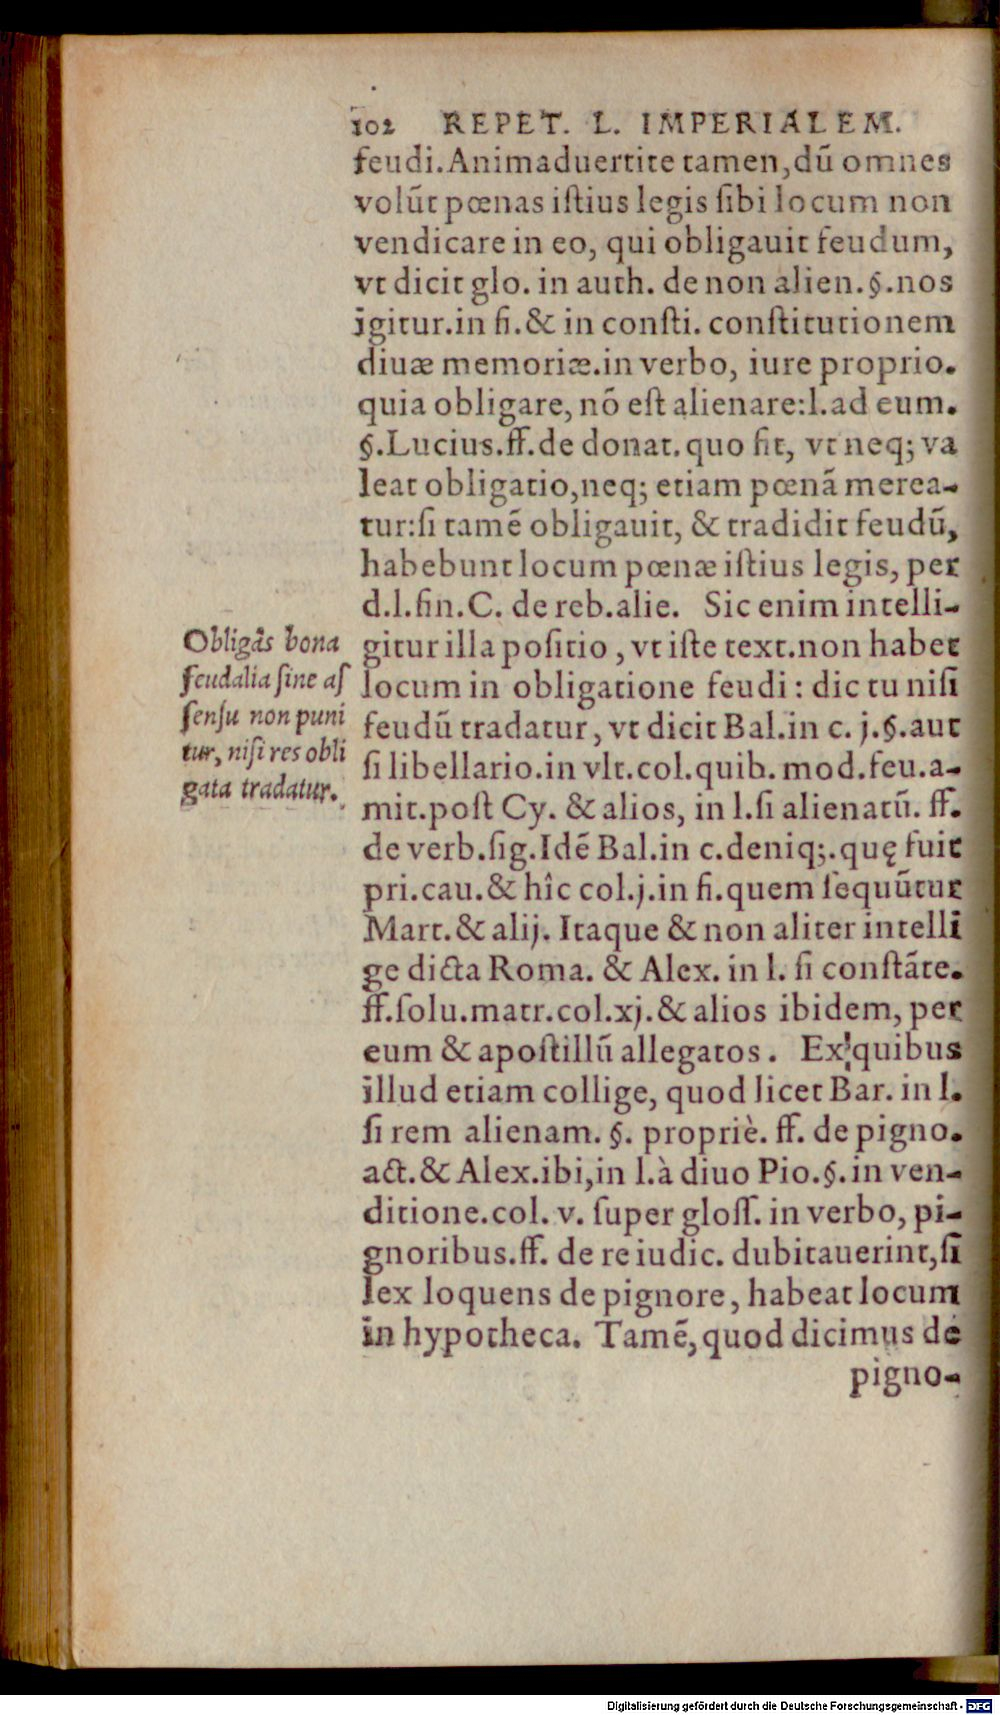 102 REPET. L. IMPERIALEM.
feudi.Animaduertite tamen,dū omnes
volūt pœnas iſtius legis ſibi locum non
vendicare in eo, qui obligauit feudum,
vt dicit glo. in auth. de non alien.§.nos
igitur.in fi.& in conſti. conſtitutionem
diuæ memoriæ.in verbo, iure proprio.
quia obligare, nō eſt alienare:l.ad eum.
§.Lucius.ff.de donat.quo fit, vt neq; va
leat obligatio,neq; etiam pœnā merea-
tur:ſi tamē obligauit, & tradidit feudū,
habebunt locum pœnæ iſtius legis, per
d.l.fin.C. de reb.alie. Sic enim intelli-
gitur illa poſitio, vt iſte text.non habet
locum in obligatione feudi: dic tu niſi
feudū tradatur, vt dicit Bal.in c. j.§.aut
ſi libellario.in vlt.col.quib. mod.feu.a-
mit.poſt Cy. & alios, in l.ſi alienatū. ff.
de verb.ſig.Idē Bal.in c.deniq;.quę fuit
pri.cau.& hîc col.j.in fi.quem ſequūtur
Mart.& alij. Itaque & non aliter intelli
ge dicta Roma. & Alex. in l. ſi conſtāte.
ff.ſolu.matr.col.xj.& alios ibidem, per
eum & apoſtillū allegatos. Ex quibus
illud etiam collige, quod licet Bar. in l.
ſi rem alienam. §. propriè. ff. de pigno.
act.& Alex.ibi,in l.à diuo Pio.§.in ven-
ditione.col. v. ſuper gloſſ. in verbo, pi-
gnoribus.ff. de re iudic. dubitauerint,ſi
lex loquens de pignore, habeat locum
in hypotheca. Tamē, quod dicimus de
pigno-
Obligās bona
feudalia ſine aſ
ſenſu non puni
tur, niſi res obli
gata tradatur.
Digitalisierung gefördert durch die Deutsche Forschungsgemeinschaft - DFG